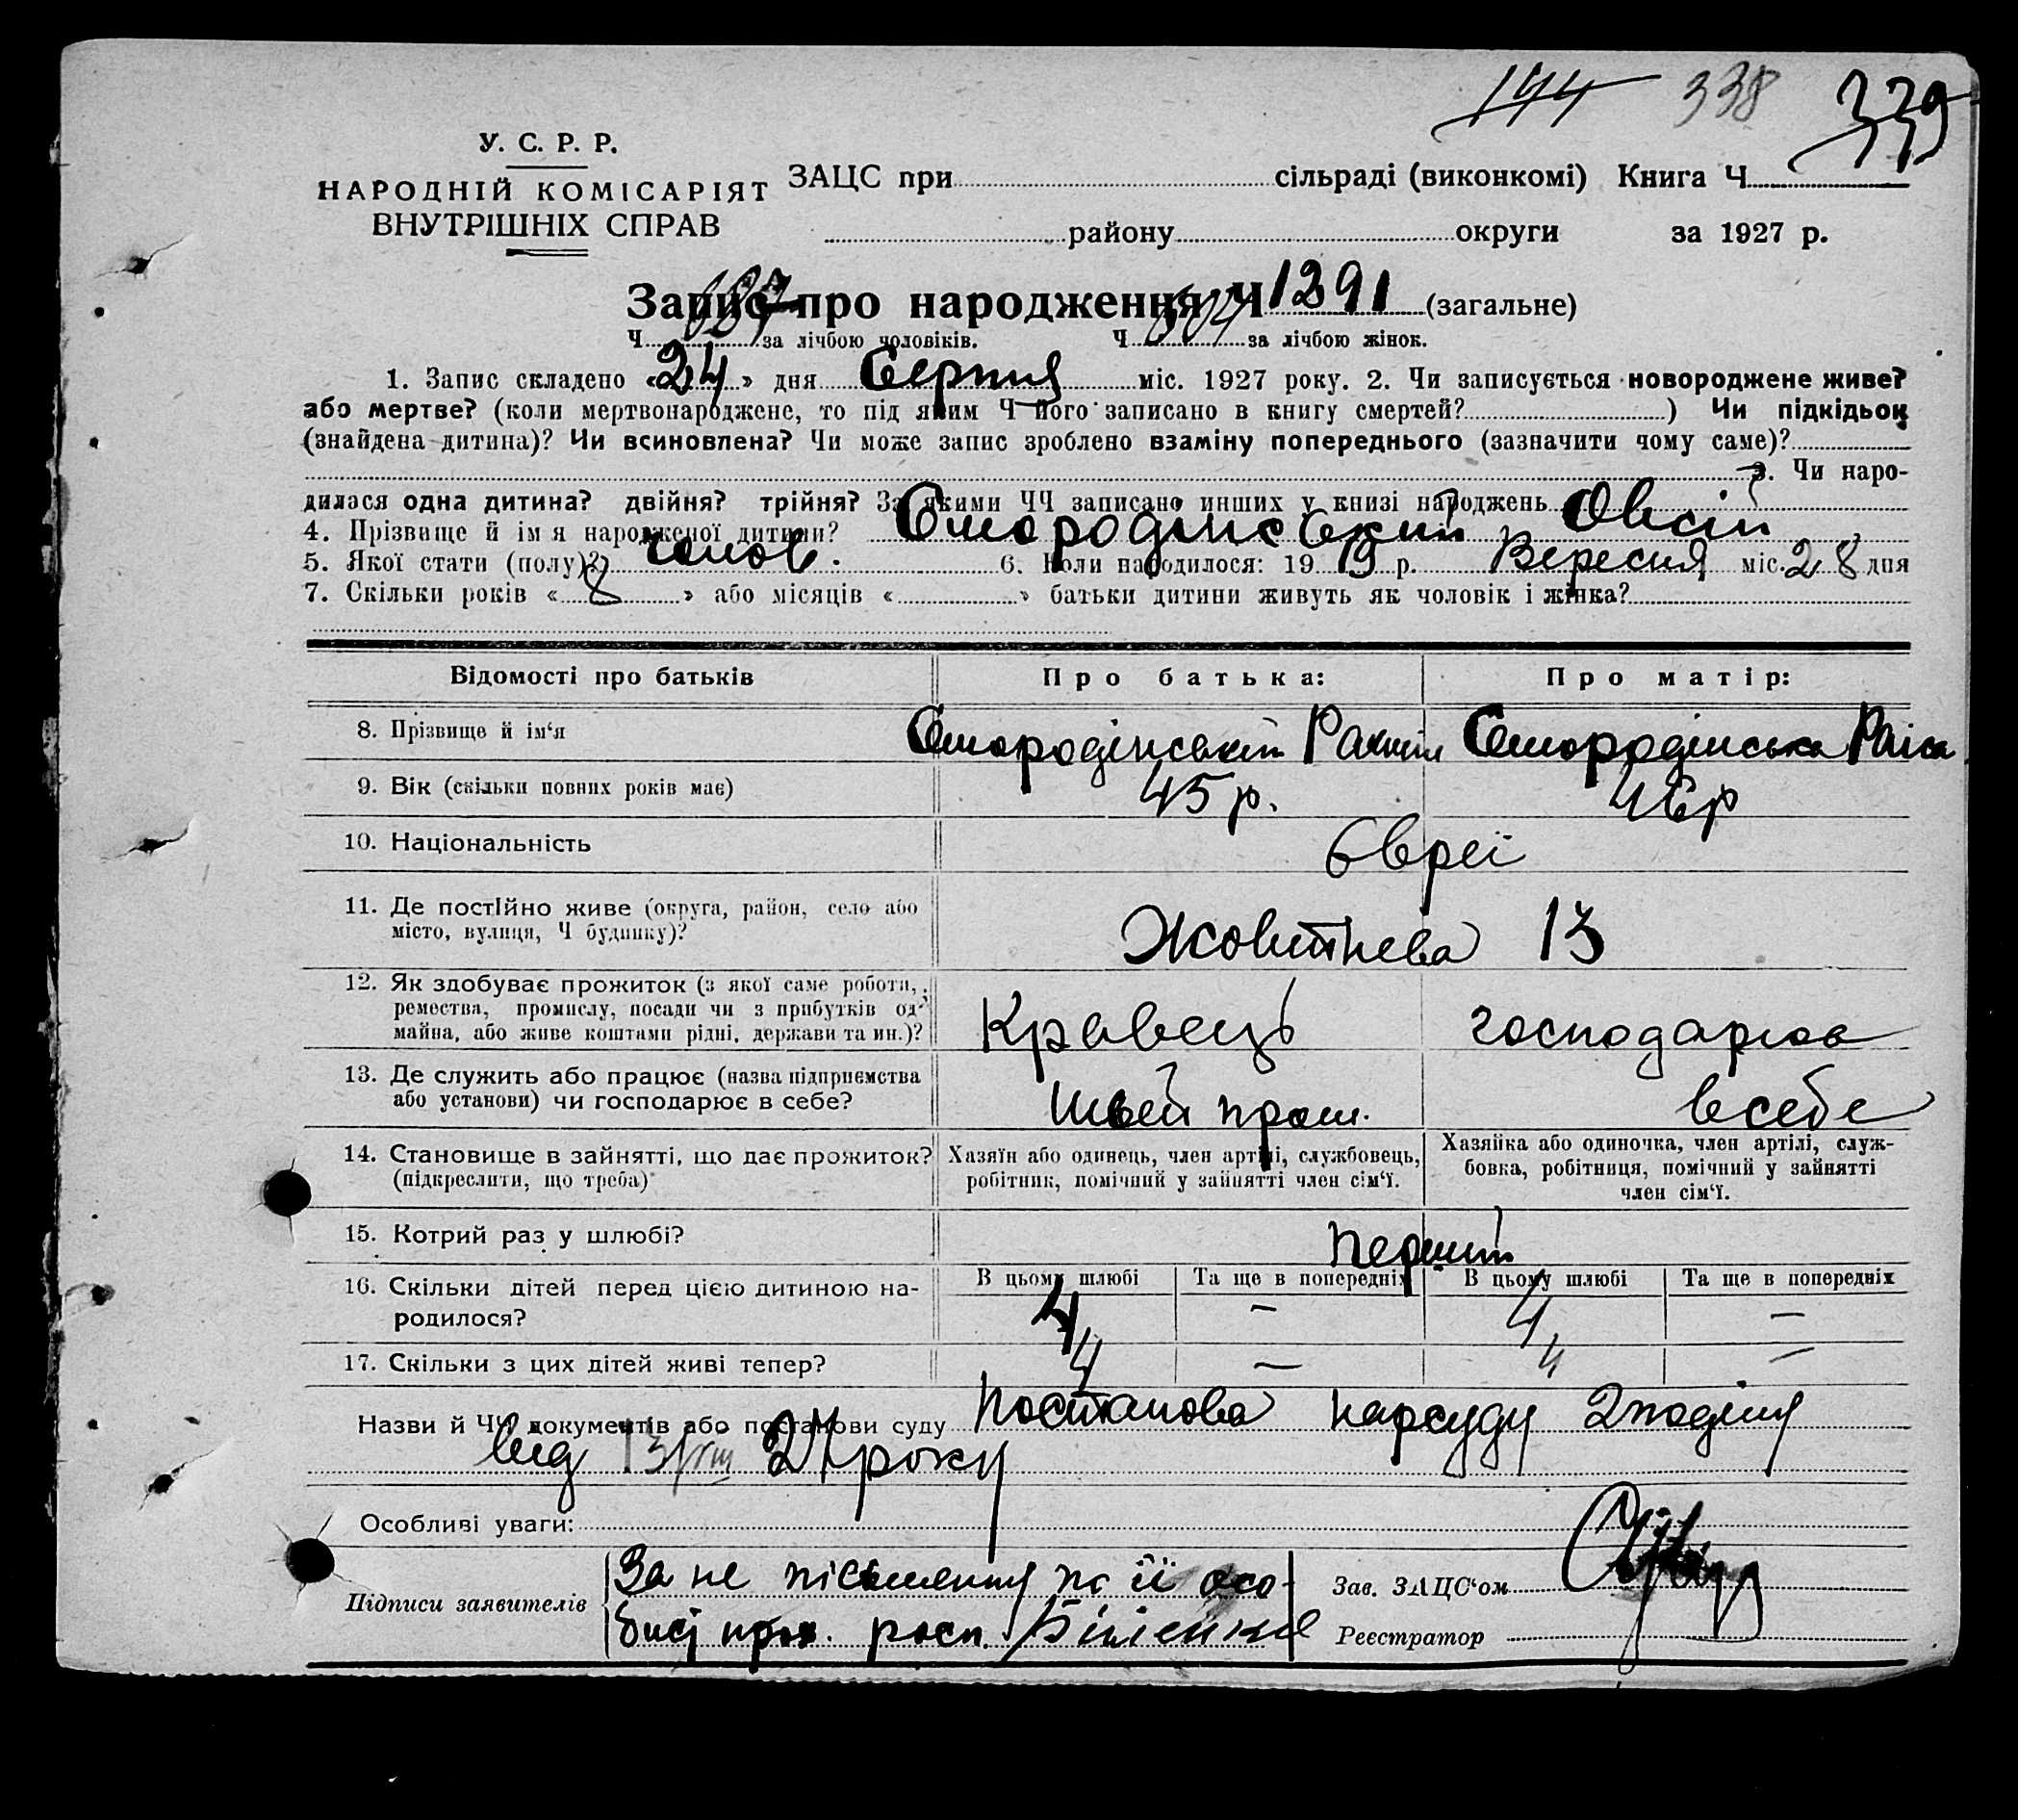 144 338 339
У. С. Р. Р.
НАРОДНІЙ КОМІСАРІЯТ
ВНУТРІШНІХ СПРАВ
ЗАЦС при сільраді (виконкомі) Книга Ч
району округи за 1927 р.
Запис про народження Ч 1391 (загальне)
Ч 687 за лічбою чоловіків. Ч 604 за лічбою жінок.
1. Запис складено «24» дня Серпня міс. 1927 року. 2. Чи записується новороджене живе?
або мертве? (коли мертвонароджене, то під яким Ч його записано в книгу смертей? ) Чи підкідьок
(знайдена дитина)? Чи всиновлена? Чи може запис зроблено взаміну попереднього (зазначити чому саме)?
3. Чи наро-
дилася одна дитина? двійня? трійня? За якими ЧЧ записано инших у книзі народжень
4. Прізвище й ім я народженої дитини? Смородінський Овсій
5. Якої стати (полу)? чолов. 6. Коли народилося: 19 19 р. Вересня міс. 28 дня
7. Скільки років «8» або місяців « » батьки дитини живуть як чоловік і жінка?
Відомості про батьків Про батька: Про матір:
8. Прізвище й ім‘я Смородінський Рахміл Смородінська Раіса
9. Вік (скільки повних років має) 45 р. 46 р
10. Національність Євреї
11. Де постійно живе (округа, район, село або
місто, вулиця, Ч будинку)? Жовтнева 13
12. Як здобуває прожиток (з якої саме роботи,
ремества, промислу, посади чи з прибутків од
майна, або живе коштами рідні, держави та ин.)? Кравець господарює
13. Де служить або працює (назва підприємства
або установи) чи господарює в себе? Швей пром. в себе
14. Становище в зайнятті, що дає прожиток?
(підкреслити, що треба)
Хазяїн або одинець, член артілі, службовець,
робітник, помічний у зайнятті член сім‘ї.
Хазяйка або одиночка, член артілі, служ-
бовка, робітниця, помічний у зайнятті
член сім‘ї.
15. Котрий раз у шлюбі? перший
В цьому шлюбі Та ще в попередніх В цьому шлюбі Та ще в попередніх
16. Скільки дітей перед цією дитиною на-
родилося? 4 — 4 —
17. Скільки з цих дітей живі тепер? 4 — 4 —
Назви й ЧЧ документів або постанови суду Постанова нарсуду 2 
від 13/VIII 27 року
Особливі уваги:
Підписи заявителів За не пісьменну по її осо-
бист прох. росп. Зав. ЗАЦС‘ом
Реєстратор